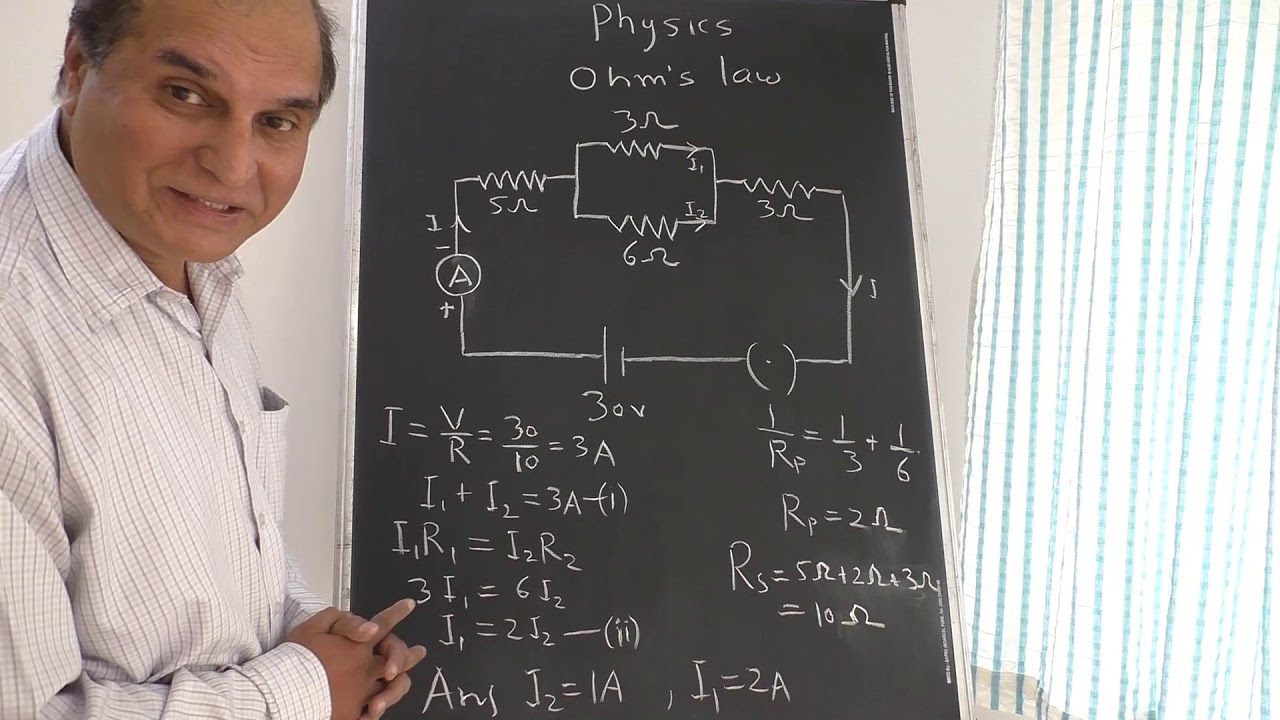 Physics
Ohm's law
3Ω
I₁
5Ω
I₂
3Ω
6Ω
I
-
A
+
I
30V
I = V/R = 30/10 = 3A
I₁ + I₂ = 3A-(i)
I₁R₁ = I₂R₂
3I₁ = 6I₂
I₁ = 2I₂ —(ii)
Ans I₂=1A , I₁=2A
1/Rₚ = 1/3 + 1/6
Rₚ=2Ω
Rs=5Ω+2Ω+3Ω
=10Ω